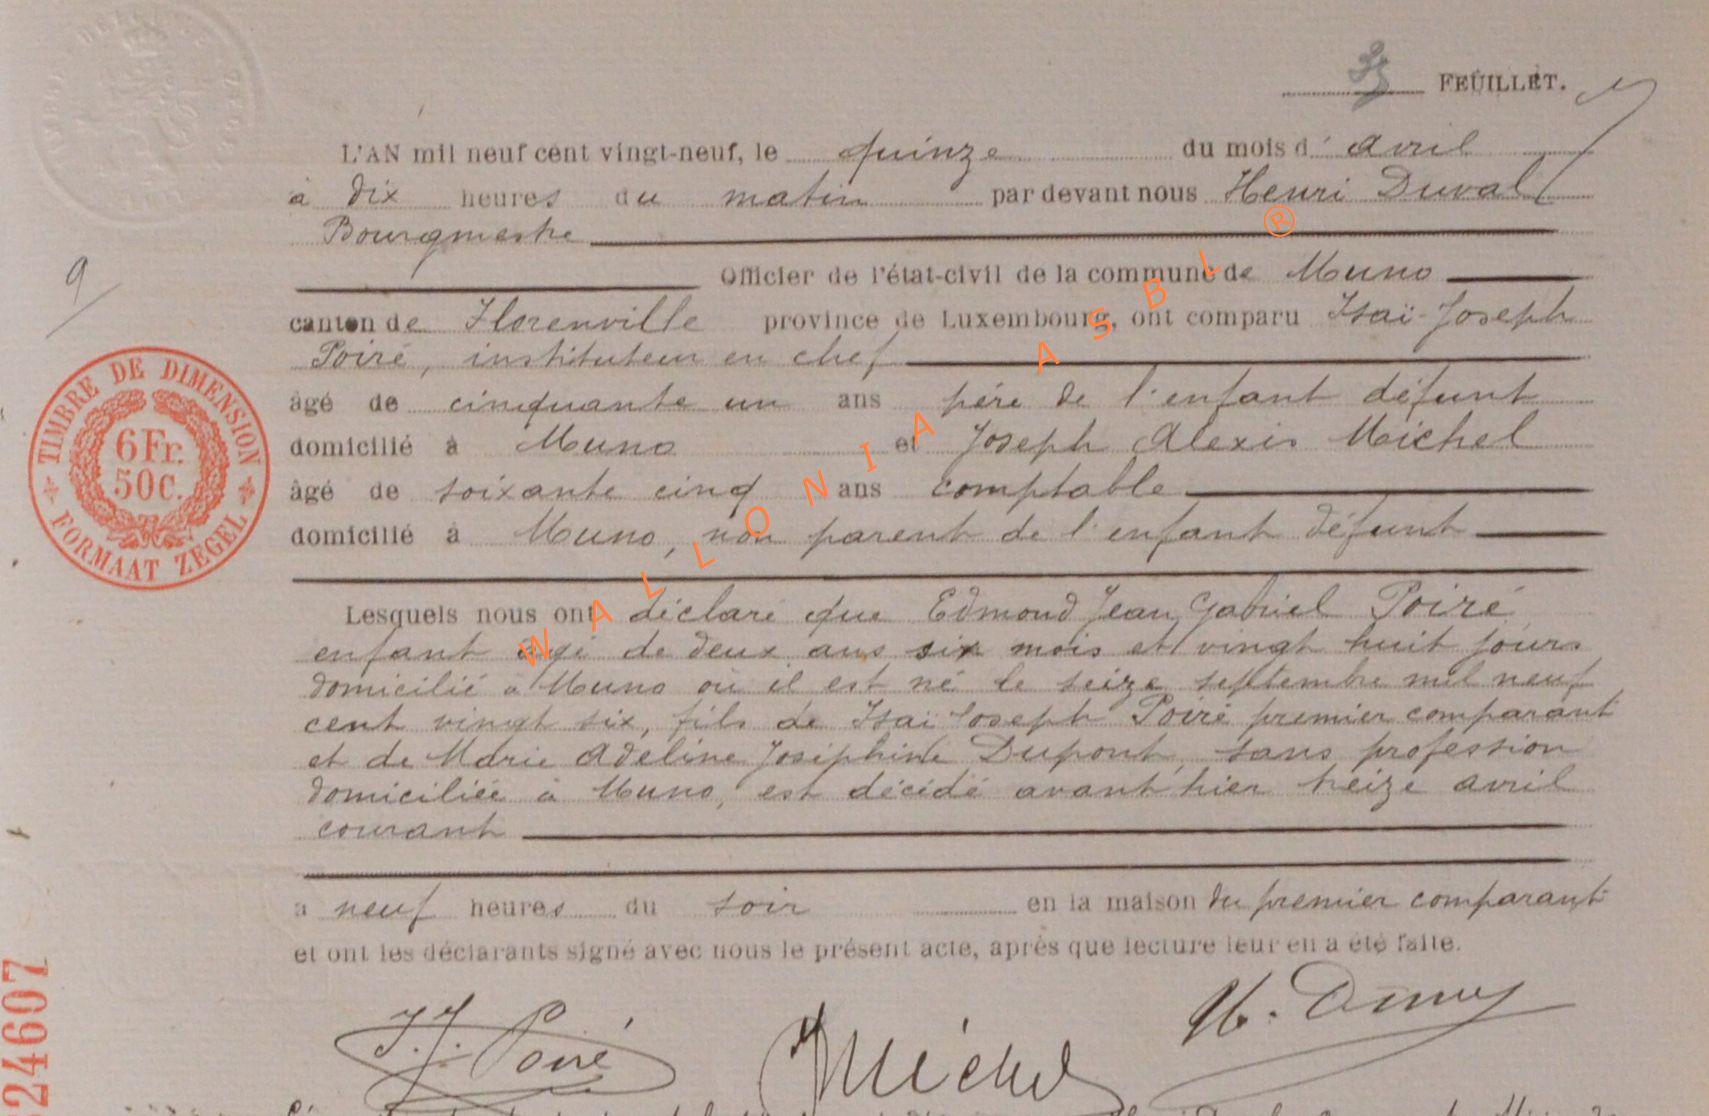 35 FEUILLET.
L'AN mil neuf cent vingt-neuf, le quinze du mois d'avril
à dix heures du matin par devant nous Henri Duval
Bourgmestre
Officier de l'état-civil de la commune de Muno
9
canton de Florenville province de Luxembourg, ont comparu Isaï-Joseph
Poiré, instituteur en chef
âgé de cinquante un ans père de l'enfant défunt
domicilié à Muno et Joseph Alexis Michel
âgé de soixante cinq ans comptable
domicilié à Muno, non parent de l'enfant défunt
TIMBRE DE DIMENSION
6 Fr.
50 C.
FORMAAT ZEGEL
Lesquels nous ont déclaré que Edmond Jean Gabriel Poiré
enfant âgé de deux ans six mois et vingt huit jours
domicilié à Muno où il est né le seize septembre mil neuf
cent vingt six, fils de Isaï Joseph Poiré premier comparant
et de Marie Adeline Joséphine Dupont, sans profession
domiciliée à Muno, est décédé avant hier treize avril
courant
à neuf heures du soir en la maison du premier comparant
et ont les déclarants signé avec nous le présent acte, après que lecture leur en a été faite.
J.J. Poiré Michel H. Duval
24607
WALLONIA ASBL ®